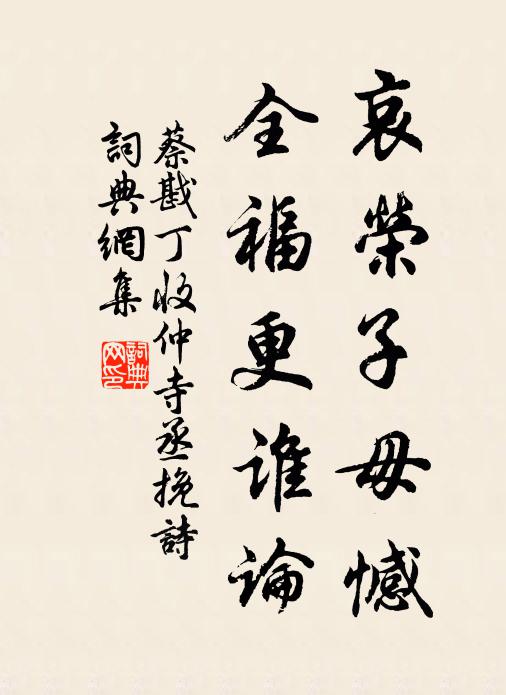 哀榮子毋憾
全福更誰論
蔡戡丁收仲寺丞挽詩
詞典網集
詞典網印